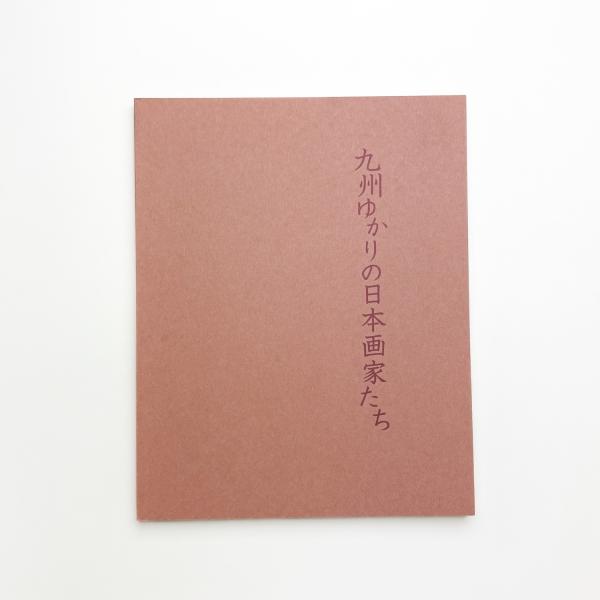 九州ゆかりの日本画家たち